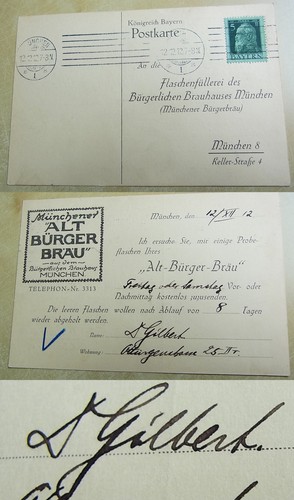 Königreich Bayern
Postkarte
BAYERN
An die
Flaschenfüllerei des
Bürgerlichen Brauhauses München
(Münchener Bürgerbräu)
München 8
Keller-Straße 4
Münchener
"ALT
BÜRGER
BRÄU"
aus dem
Bürgerlichen Brauhaus
MÜNCHEN
TELEPHON-Nr. 3313
München, den 12/XII 12
Ich ersuche Sie, mir einige Probe-
flaschen Ihres
„Alt-Bürger-Bräu"
Freitag oder Samstag Vor- oder
Nachmittag kostenlos zuzusenden.
Die leeren Flaschen wollen nach Ablauf von 8 Tagen
wieder abgeholt werden.
Name: Dr Gilbert
Wohnung: 25 II r.
Dr Gilbert.